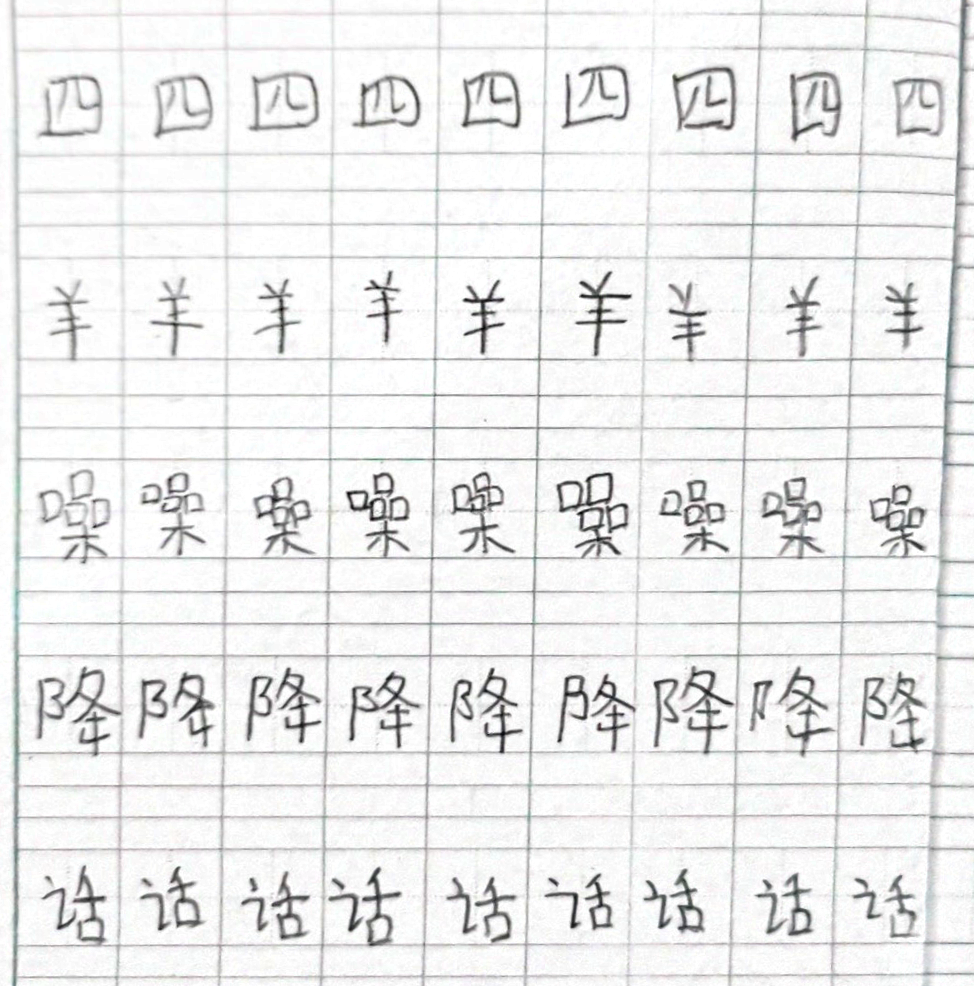 四 四 四 四 四 四 四 四 四
羊 羊 羊 羊 羊 羊 羊 羊 羊
噪 噪 噪 噪 噪 噪 噪 噪 噪
降 降 降 降 降 降 降 降 降
话 话 话 话 话 话 话 话 话